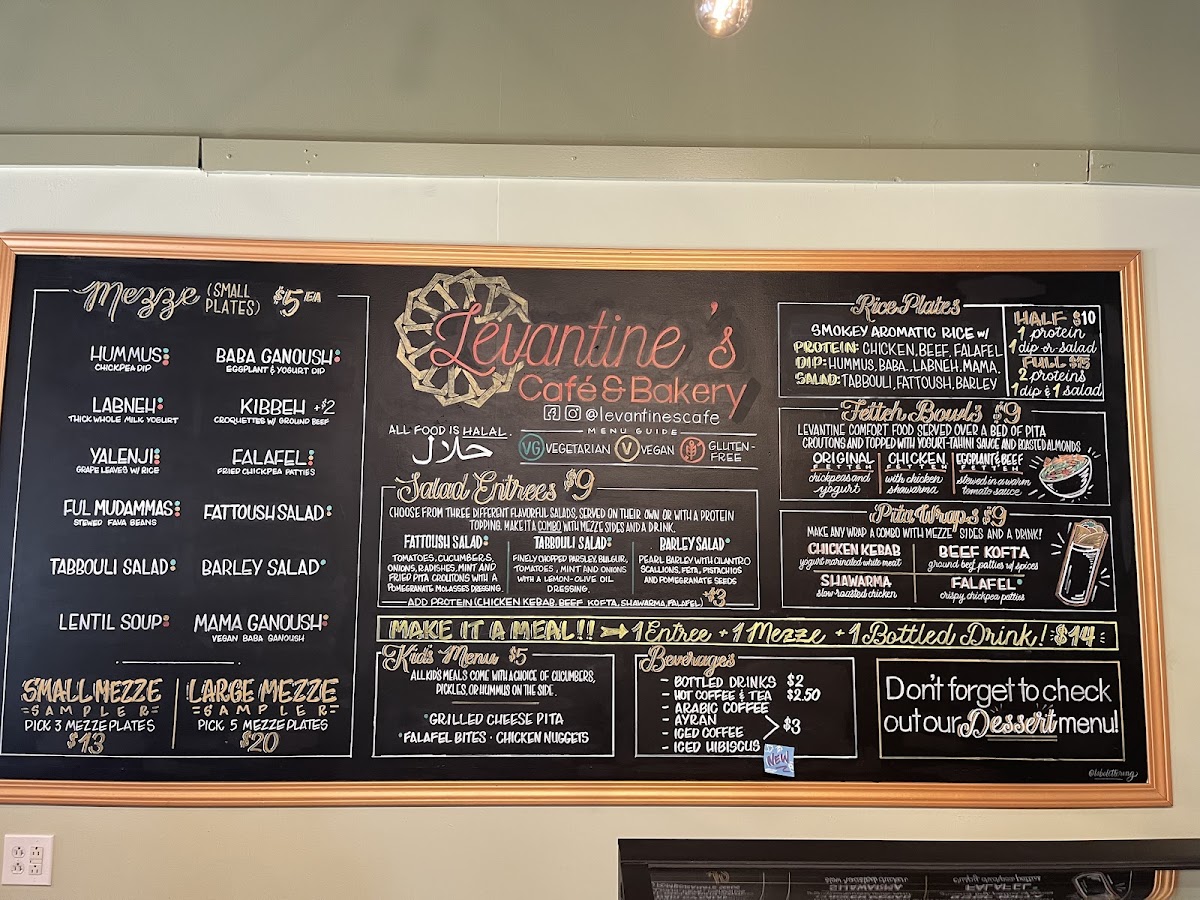 Mezze (SMALL PLATES) $5 /EA
HUMMUS
CHICKPEA DIP
BABA GANOUSH
EGGPLANT & YOGURT DIP
LABNEH
THICK WHOLE MILK YOGURT
KIBBEH +$2
CROQUETTES W/ GROUND BEEF
YALENJI
GRAPE LEAVES W/ RICE
FALAFEL
FRIED CHICKPEA PATTIES
FUL MUDAMMAS
STEWED FAVA BEANS
FATTOUSH SALAD
TABBOULI SALAD
BARLEY SALAD
LENTIL SOUP
MAMA GANOUSH
VEGAN BABA GANOUSH
SMALL MEZZE
SAMPLER
PICK 3 MEZZE PLATES
$13
LARGE MEZZE
SAMPLER
PICK 5 MEZZE PLATES
$20
Levantine's
Café & Bakery
@levantinescafe
ALL FOOD IS HALAL.
حلال
MENU GUIDE
VG VEGETARIAN V VEGAN GLUTEN-
FREE
Salad Entrees $9
CHOOSE FROM THREE DIFFERENT FLAVORFUL SALADS, SERVED ON THEIR OWN OR WITH A PROTEIN
TOPPING. MAKE IT A COMBO WITH MEZZE SIDES AND A DRINK.
FATTOUSH SALAD
TOMATOES, CUCUMBERS,
ONIONS, RADISHES, MINT AND
FRIED PITA CROUTONS WITH A
POMEGRANATE MOLASSES DRESSING
TABBOULI SALAD
FINELY CHOPPED PARSLEY, BULGUR,
TOMATOES, MINT AND ONIONS
WITH A LEMON-OLIVE OIL
DRESSING.
BARLEY SALAD
PEARL BARLEY WITH CILANTRO
SCALLIONS, FETA, PISTACHIOS
AND POMEGRANATE SEEDS
ADD PROTEIN (CHICKEN KEBAB, BEEF KOFTA, SHAWARMA, FALAFEL) +$3
MAKE IT A MEAL!! 1 Entree + 1 Mezze + 1 Bottled Drink! $14
Kid's Menu $5
ALL KID'S MEALS COME WITH A CHOICE OF CUCUMBERS,
PICKLES, OR HUMMUS ON THE SIDE.
GRILLED CHEESE PITA
FALAFEL BITES • CHICKEN NUGGETS
Beverages
- BOTTLED DRINKS $2
- HOT COFFEE & TEA $2.50
- ARABIC COFFEE
- AYRAN
- ICED COFFEE
- ICED HIBISCUS
$3
NEW
Rice Plates
SMOKEY AROMATIC RICE W/
PROTEIN: CHICKEN, BEEF, FALAFEL
DIP: HUMMUS, BABA, LABNEH, MAMA,
SALAD: TABBOULI, FATTOUSH, BARLEY
HALF $10
1 protein
1 dip or salad
FULL $15
2 proteins
1 dip & 1 salad
Fetteh Bowls $9
LEVANTINE COMFORT FOOD SERVED OVER A BED OF PITA
CROUTONS AND TOPPED WITH YOGURT-TAHINI SAUCE AND ROASTED ALMONDS
ORIGINAL
FETTEH
chickpeas and
yogurt
CHICKEN
FETTEH
with chicken
shawarma
EGGPLANT & BEEF
FETTEH
stewed in a warm
tomato sauce
Pita Wraps $9
MAKE ANY WRAP A COMBO WITH MEZZE SIDES AND A DRINK!
CHICKEN KEBAB
yogurt marinated white meat
BEEF KOFTA
ground beef patties w/ spices
SHAWARMA
slow-roasted chicken
FALAFEL
crispy chickpea patties
Don't forget to check
out our Dessert menu!